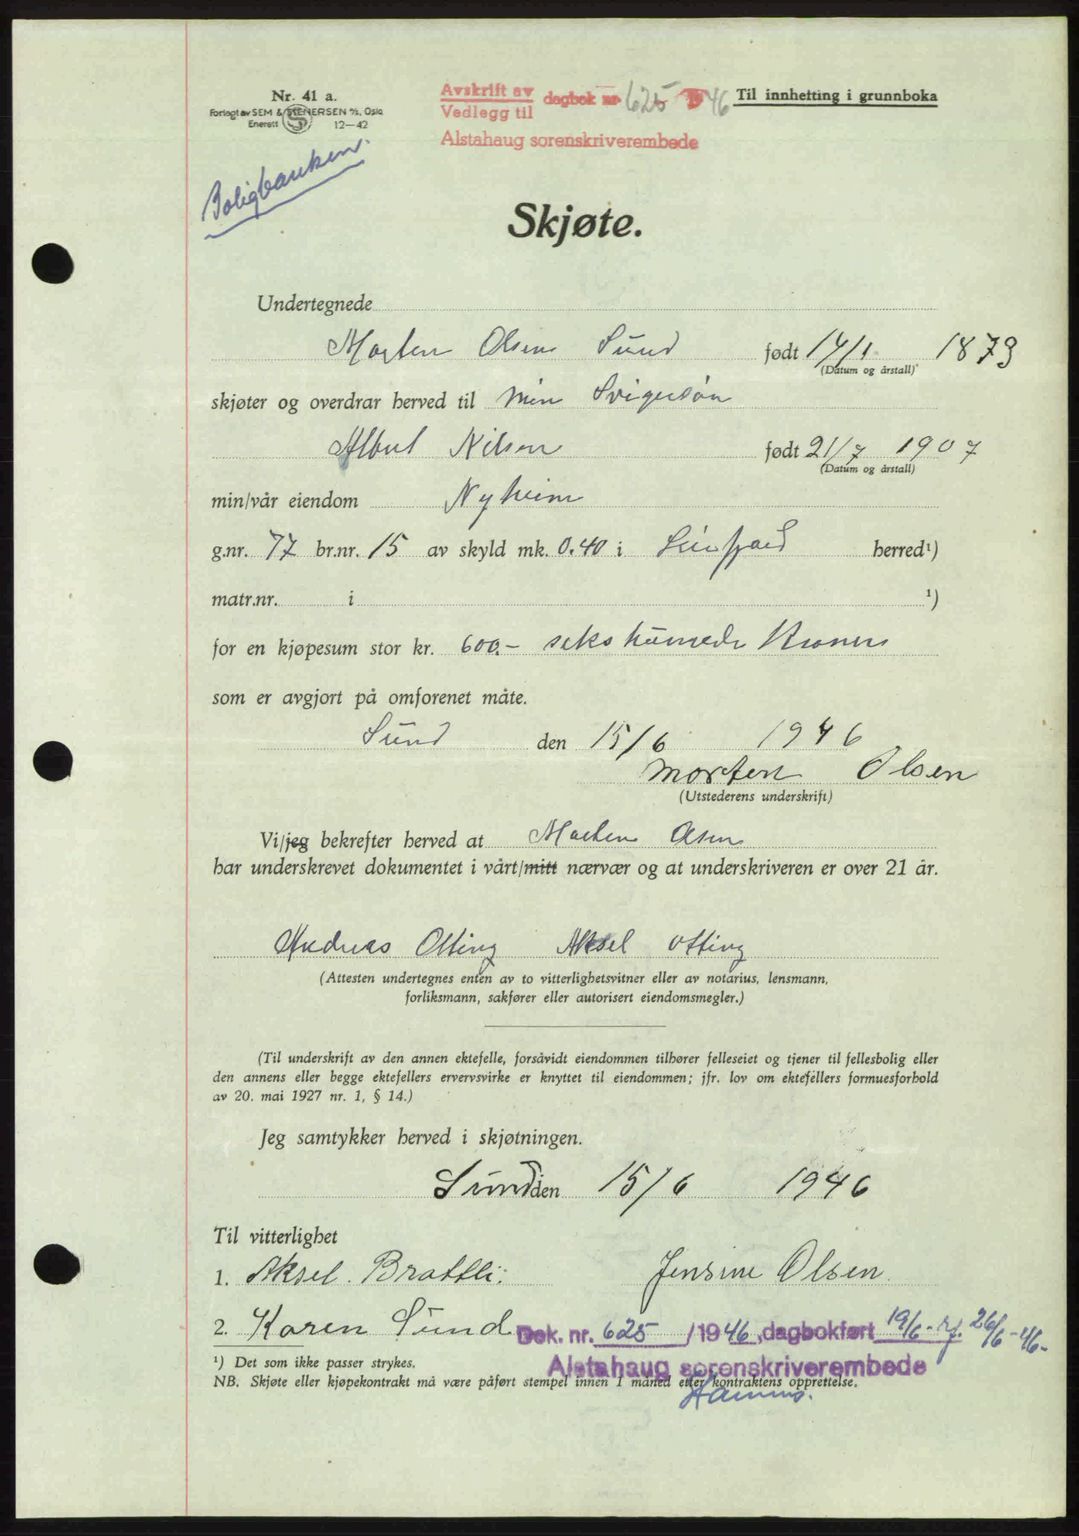 Nr. 41 a.
Forlagt av SEM & STENERSEN A/S, Oslo
Enerett 12—42
Avskrift av
Vedlegg til dagbok nr 625 1946
Alstahaug sorenskriverembede
Til innhefting i grunnboka
Boligbanken.
Skjøte.
Undertegnede
Morten Olsen Sund født 17/1 1873
(Datum og årstall)
skjøter og overdrar herved til min Svigersøn
Albert Nilsen født 21/7 1907
(Datum og årstall)
min/vår eiendom Nyheim
g.nr. 77 br.nr. 15 av skyld mk. 0.40 i Leirfjord herred¹)
matr.nr. i ¹)
for en kjøpesum stor kr. 600.- seks hundrede Kroner
som er avgjort på omforenet måte.
Sund den 15/6 1946
Morten Olsen
(Utstederens underskrift)
Vi/jeg bekrefter herved at Morten Olsen
har underskrevet dokumentet i vårt/mitt nærvær og at underskriveren er over 21 år.
Andreas Olting Aksel Olting
(Attesten undertegnes enten av to vitterlighetsvitner eller av notarius, lensmann,
forliksmann, sakfører eller autorisert eiendomsmegler.)
(Til underskrift av den annen ektefelle, forsåvidt eiendommen tilhører felleseiet og tjener til fellesbolig eller
den annens eller begge ektefellers ervervsvirke er knyttet til eiendommen; jfr. lov om ektefellers formuesforhold
av 20. mai 1927 nr. 1, § 14.)
Jeg samtykker herved i skjøtningen.
Sund den 15/6 1946
Til vitterlighet
1. Aksel. Brattli. Jensine Olsen
2. Karen Sund
Dok. nr. 625 /1946, dagbokført 19/6- rf. 26/6-46.
Alstahaug sorenskriverembede
¹) Det som ikke passer strykes.
NB. Skjøte eller kjøpekontrakt må være påført stempel innen 1 måned efter kontraktens opprettelse.